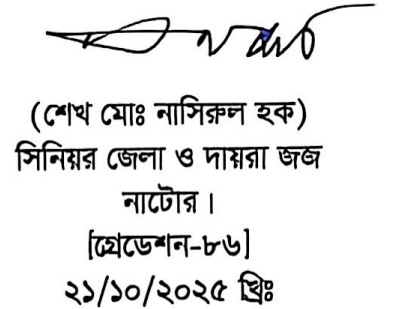 (শেখ মোঃ নাসিরুল হক)
সিনিয়র জেলা ও দায়রা জজ
নাটোর।
[গ্রেডেশন-৮৬]
২১/১০/২০২৫ খ্রিঃ